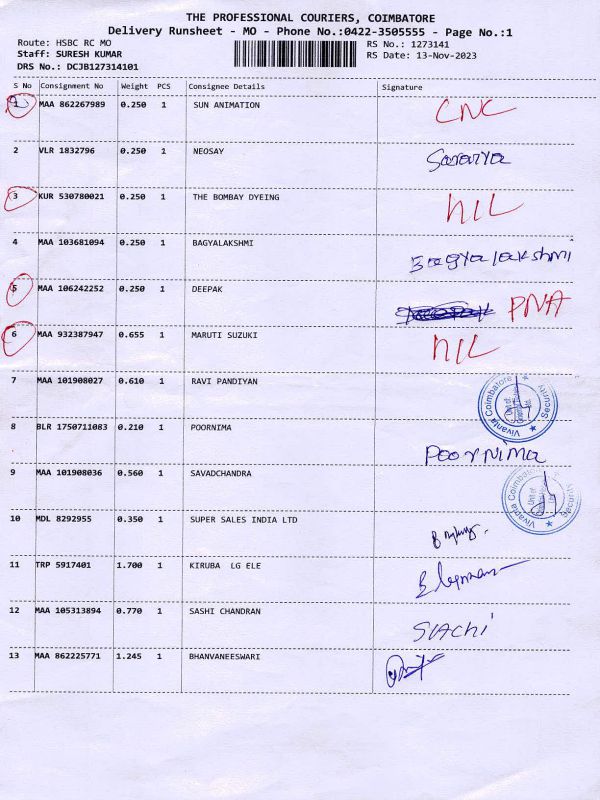 THE PROFESSIONAL COURIERS, COIMBATORE
Delivery Runsheet - MO - Phone No.:0422-3505555 - Page No.:1
Route: HSBC RC MO
RS No.: 1273141
Staff: SURESH KUMAR
RS Date: 13-Nov-2023
DRS No.: DCJB127314101
S No Consignment No Weight PCS Consignee Details Signature
1 MAA 862267989 0.250 1 SUN ANIMATION CNC
2 VLR 1832796 0.250 1 NEOSAY Saranya
3 KUR 530780021 0.250 1 THE BOMBAY DYEING NIL
4 MAA 103681094 0.250 1 BAGYALAKSHMI Bagyalakshmi
5 MAA 106242252 0.250 1 DEEPAK PNA
6 MAA 932387947 0.655 1 MARUTI SUZUKI NIL
7 MAA 101908027 0.610 1 RAVI PANDIYAN Vivanta Coimbatore Security
8 BLR 1750711083 0.210 1 POORNIMA POORNIMA
9 MAA 101908036 0.560 1 SAVADCHANDRA Vivanta Coimbatore Security
10 MDL 8292955 0.350 1 SUPER SALES INDIA LTD
11 TRP 5917401 1.700 1 KIRUBA LG ELE
12 MAA 105313894 0.770 1 SASHI CHANDRAN SIACHI
13 MAA 862225771 1.245 1 BHANVANEESWARI